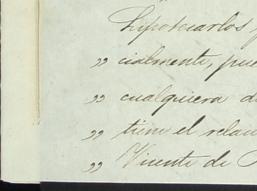 hipotecarlos
„ cialmente, pue
„ cualquiera d
„ tiene el
„ Vicente de